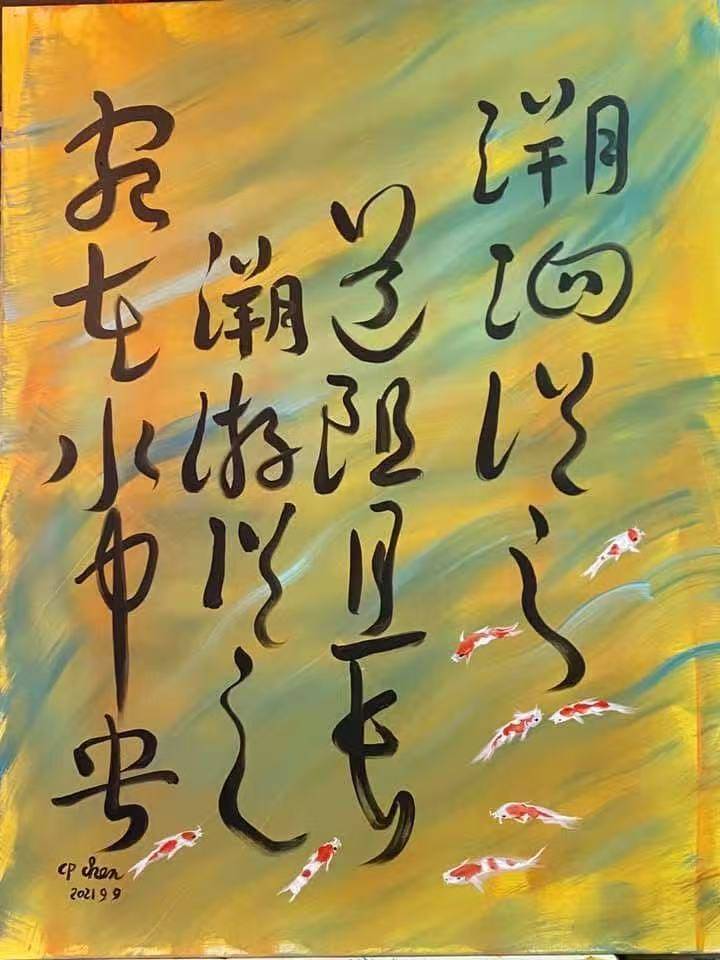 溯洄從之
道阻且長
溯游從之
宛在水中央
CP Chen
2021 9 9